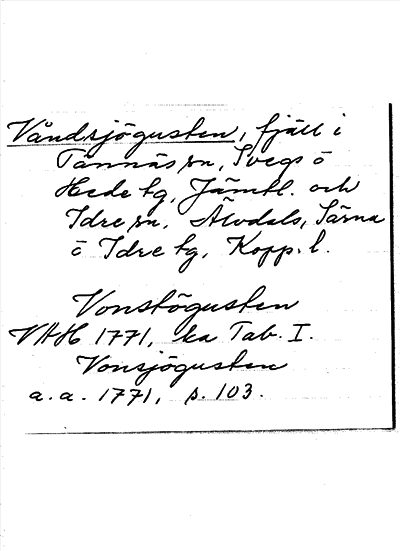 Våndsjögusten, fjäll i
Tännäs sn, Svegs o
Hede tg, Jämtl. och
Idre sn, Älvdals, Särna
o Idre tg, Kopp. l.
Vonstögusten
VAH 1771, ka Tab. I.
Vonsjögusten
a. a. 1771, s. 103.